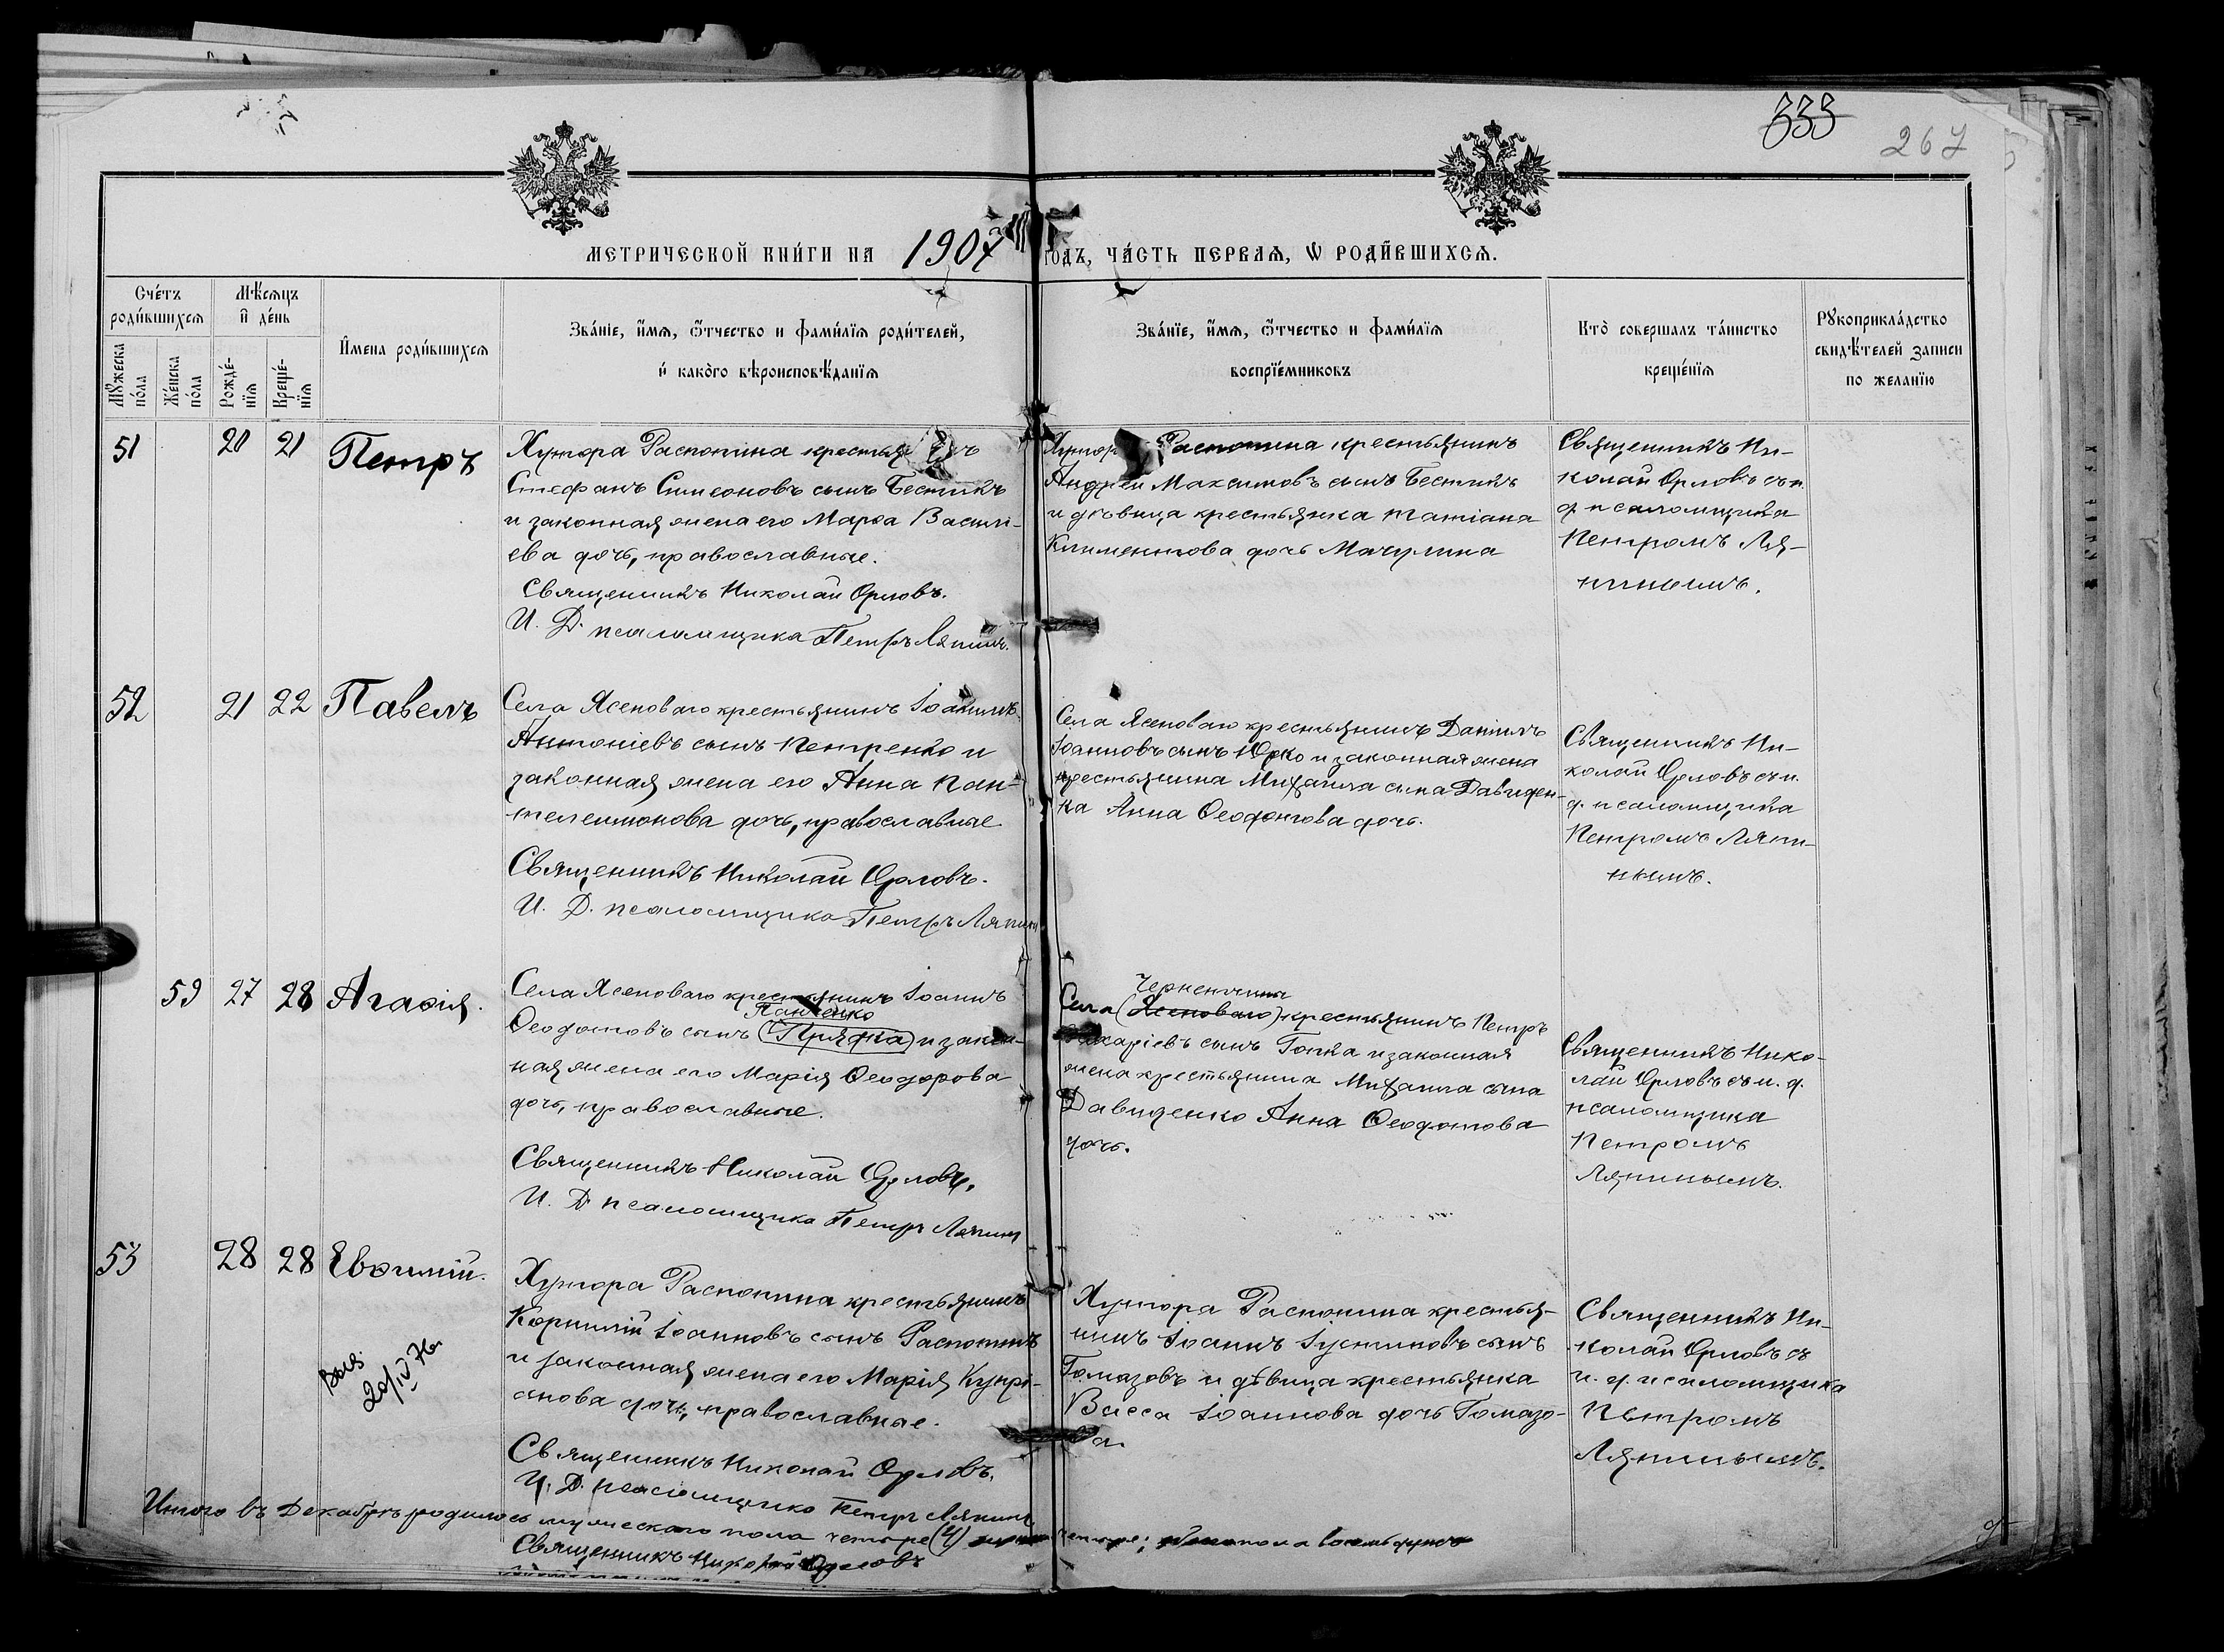 333
267
МЕТРИЧЕСКОЙ КНИГИ НА 1907 ГОДЪ, ЧАСТЬ ПЕРВАЯ, Ѡ РОДИВШИХСЯ.
Счетъ родившихся
Мѣсяцъ и день
Мужеска пола
Женска пола
Рожденія
Крещенія
Имена родившихся
Званіе, имя, отчество и фамилія родителей,
и какого вѣроисповѣданія
Званіе, имя, отчество и фамилія
воспріемниковъ
Кто совершалъ таинство
крещенія
Рукоприкладство
свидѣтелей записи
по желанію
51 20 21 Петръ
Хутора Распопина крестья
Стефанъ Симеоновъ сынъ Бестикъ
и законная жена его Марѳа Васили-
ева дочь, православные.
Священникъ Николай Орловъ.
И. Д. псаломщика Петръ Ляпинъ.
Хутор Распопина крестьянинъ
Андрей Максимовъ сынъ Бестикъ
и дѣвица крестьянка Татіана
Климентова дочь Мачулина
Священникъ Ни-
колай Орловъ съ и.
д. псаломщика
Петромъ Ля-
пинымъ.
52 21 22 Павелъ
Села Ясеноваго крестьянинъ Іоакимъ
Антоніевъ сынъ Петренко и
законная жена его Анна Пан-
телеимонова дочь, православные
Священникъ Николай Орловъ.
И. Д. псаломщика Петръ Ляпинъ
Села Ясеноваго крестьянинъ Даніилъ
Іоанновъ сынъ Юрко и законная жена
крестьянина Михаила сына Давиден-
ка Анна Ѳеодотова дочь.
Священникъ Ни-
колай Орловъ съ и.
д. псаломщика
Петромъ Ляпи-
нымъ.
59 27 28 Агаѳія.
Села Ясеноваго крестьянинъ Іоаннъ
Панченко
Ѳеодотовъ сынъ (Пряжка) и закон-
ная жена его Марія Ѳеодорова
дочь, православные.
Священникъ Николай Орловъ,
И. Д. псаломщика Петръ Ляпинъ
Села (Ясеноваго) крестьянинъ Петръ
Захаріевъ сынъ Гопка и законная
жена крестьянина Михаила сына
Давиденко Анна Ѳеодотова
дочь.
Священникъ Нико-
лай Орловъ съ и. д.
псаломщика
Петромъ
Ляпинымъ.
53 28 28 Евѳимій.
20/IV 76
Хутора Распопина крестьянинъ
Корнилій Іоанновъ сынъ Распопинъ
и законная жена его Марія Кипрі-
анова дочь, православные.
Священникъ Николай Орловъ.
И. Д. псаломщика Петръ Ляпинъ
Хутора Распопина крестья-
нинъ Іоаннъ Іустиновъ сынъ
Гомазовъ и дѣвица крестьянка
Васса Іоаннова дочь Гомазо-
ва
Священникъ Ни-
колай Орловъ съ
и. д. псаломщика
Петромъ
Ляпинымъ.
Итого въ Декабрѣ родилось мужескаго пола четыре (4)
Священникъ Николай Орловъ